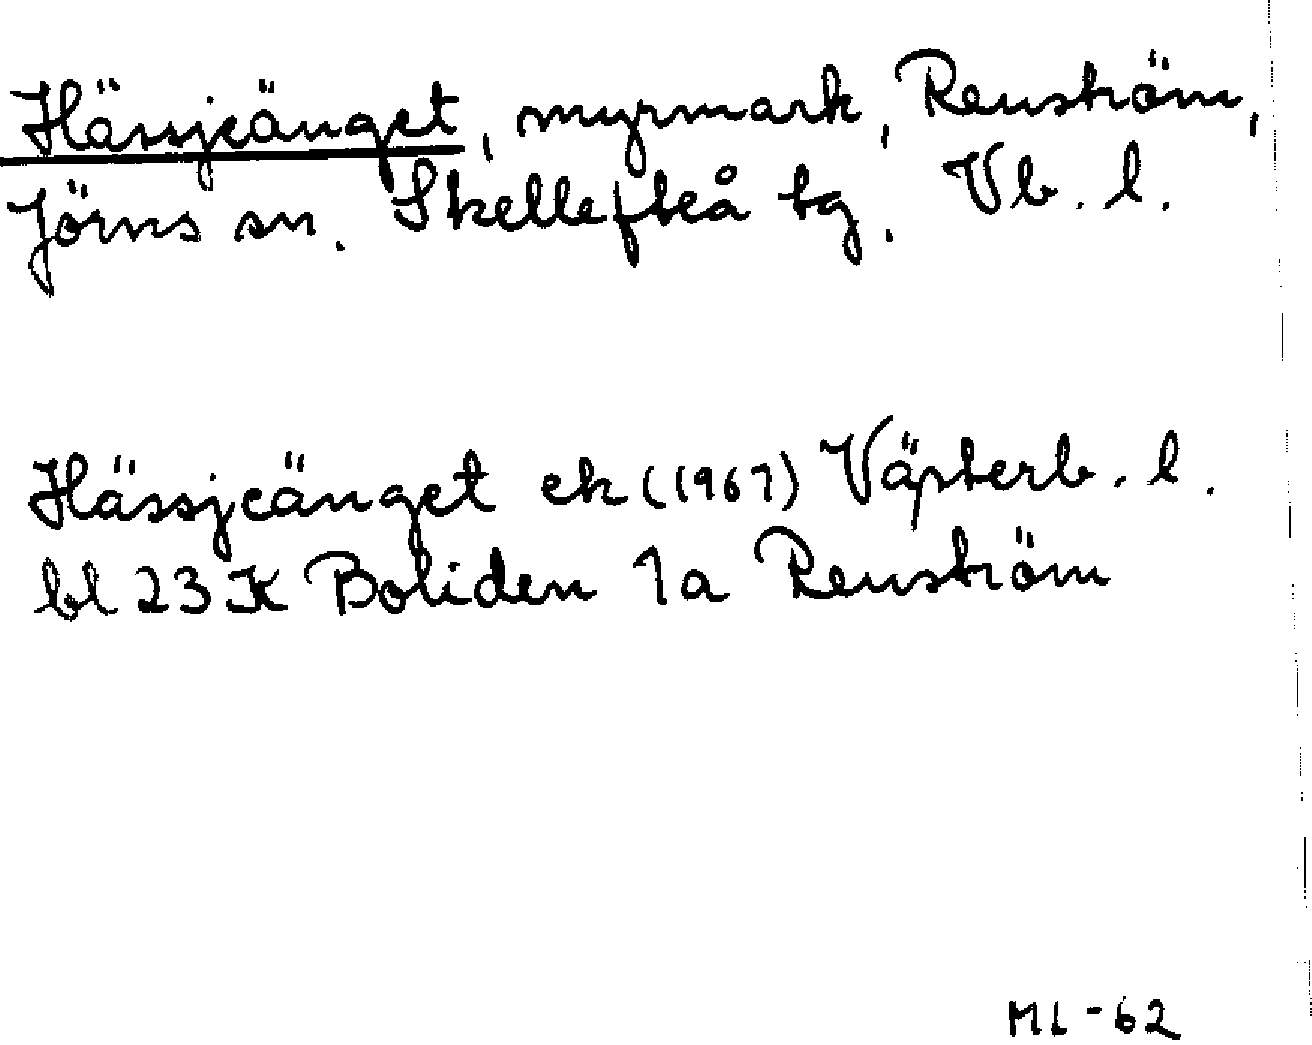 Hässjeänget, myrmark, Renström,
Jörns sn. Skellefteå tg. Vb. l.
Hässjeänget ek (1967) Västerb. l.
bl 23 K Boliden 1a Renström
ML-62